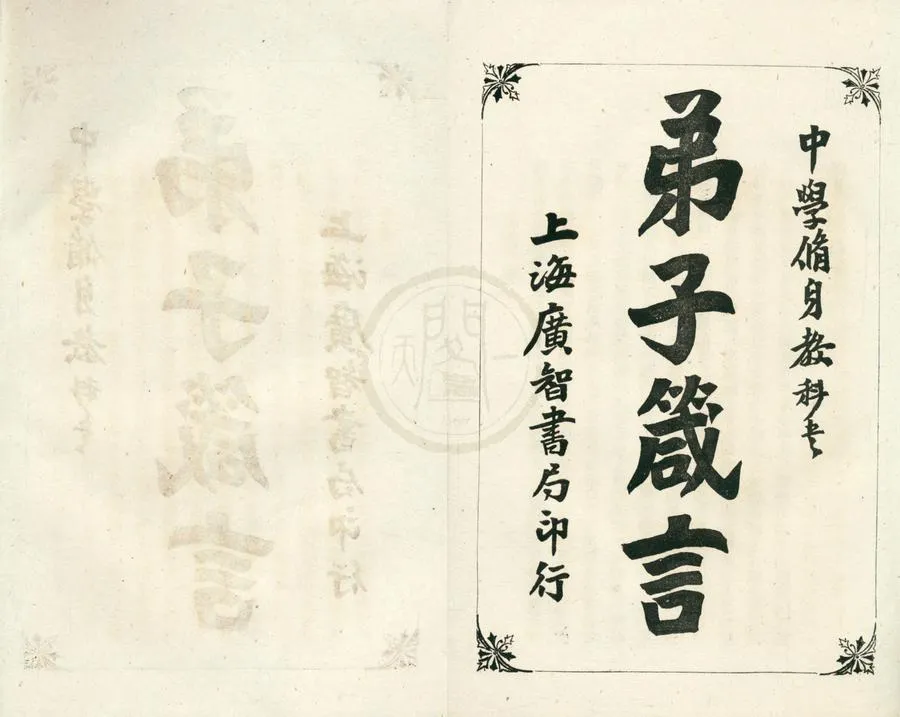 中學脩身教科書
弟子箴言
上海廣智書局印行